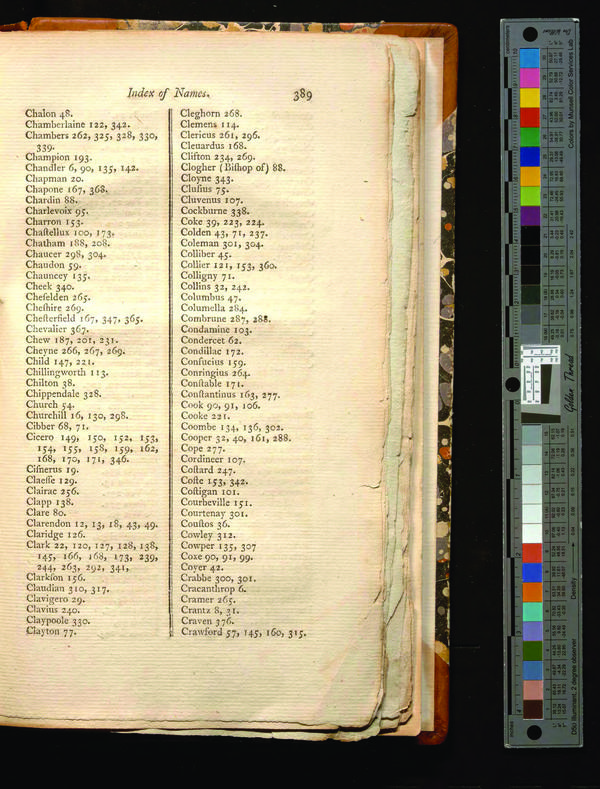 Index of Names.
389
Chalon 48.
Chamberlaine 122, 342.
Chambers 262, 325, 328, 330,
339.
Champion 193.
Chandler 6, 90, 135, 142.
Chapman 20.
Chapone 167, 368.
Chardin 88.
Charlevoix 95.
Charron 153.
Chaſtellux 100, 173.
Chatham 188, 208.
Chaucer 298, 304.
Chaudon 59.
Chauncey 135.
Cheek 340.
Cheſelden 265.
Cheſhire 269.
Cheſterfield 167, 347, 365.
Chevalier 367.
Chew 187, 201, 231.
Cheyne 266, 267, 269.
Child 147, 221.
Chillingworth 113.
Chilton 38.
Chippendale 328.
Church 54.
Churchill 16, 130, 298.
Cibber 68, 71.
Cicero 149, 150, 152, 153,
154, 155, 158, 159, 162,
168, 170, 171, 346.
Ciſnerus 19.
Claeſſe 129.
Clairac 256.
Clapp 138.
Clare 80.
Clarendon 12, 13, 18, 43, 49.
Claridge 126.
Clark 22, 120, 127, 128, 138,
145, 166, 168, 173, 239,
244, 263, 292, 341,
Clarkſon 156.
Claudian 310, 317.
Clavigero 29.
Clavius 240.
Claypoole 330.
Clayton 77.
Cleghorn 268.
Clemens 114.
Clericus 261, 296.
Cleuardus 168.
Clifton 234, 269.
Clogher (Biſhop of) 88.
Cloyne 343.
Cluſius 75.
Cluvenus 107.
Cockburne 338.
Coke 39, 223, 224.
Colden 43, 71, 237.
Coleman 301, 304.
Colliber 45.
Collier 121, 153, 360.
Colligny 71.
Collins 32, 242.
Columbus 47.
Columella 284.
Combrune 287, 288.
Condamine 103.
Condercet 62.
Condillac 172.
Confucius 159.
Conringius 264.
Conſtable 171.
Conſtantinus 163, 277.
Cook 90, 91, 106.
Cooke 221.
Coombe 134, 136, 302.
Cooper 32, 40, 161, 288.
Cope 277.
Cordineer 107.
Coſtard 247.
Coſte 153, 342.
Coſtigan 101.
Courbeville 151.
Courtenay 301.
Couſtos 36.
Cowley 312.
Cowper 135, 307
Coxe 90, 91, 99.
Coyer 42.
Crabbe 300, 301.
Cracanthrop 6.
Cramer 265.
Crantz 8, 31.
Craven 376.
Crawford 57, 145, 160, 315.
Colors by Munsell Color Services Lab
Golden Thread
Density
D50 Illuminant, 2 degree observer
inches